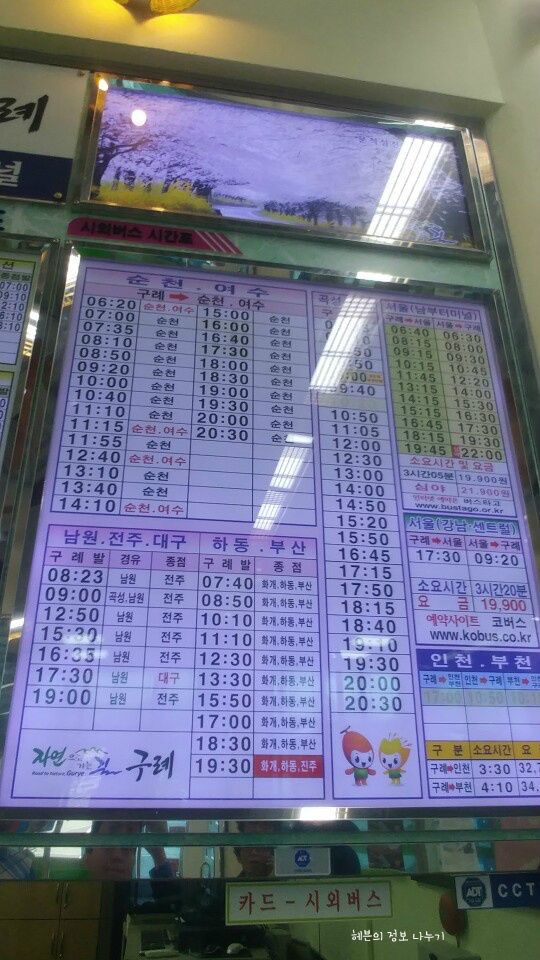 례
설
시외버스 시간표
순천.여수
구례 ➡ 순천.여수
06:20 순천.여수 15:00 순천
07:00 순천 16:00 순천
07:35 순천 16:40 순천
08:10 순천 17:30 순천
08:50 순천 18:00 순천
09:20 순천 18:30 순천
10:00 순천 19:00 순천
10:40 순천 19:30 순천
11:10 순천 20:00 순천
11:15 순천.여수 20:30
11:55 순천
12:40 순천.여수
13:10 순천
13:40 순천
14:10 순천.여수
남원.전주.대구
구례발 경유 종점
08:23 남원 전주
09:00 곡성,남원 전주
12:50 남원 전주
남원 전주
16:35 남원 전주
17:30 남원 대구
19:00 남원 전주
하동.부산
구례발 종점
07:40 화개,하동,부산
08:50 화개,하동,부산
10:10 화개,하동,부산
11:10 화개,하동,부산
12:30 화개,하동,부산
13:30 화개,하동,부산
15:50 화개,하동,부산
17:00 화개,하동,부산
18:30 화개,하동,부산
19:30 화개,하동,진주
자연으로 가는 길
Road to Nature, Gurye
구례
곡성
10:50
11:05
12:00
12:30
13:00
14:00
14:50
15:20
15:50
16:45
17:15
17:50
18:15
18:40
19:10
19:30
20:00
20:30
서울(남부터미널)
구례➡서울 서울➡구례
06:40 06:30
08:15 08:00
09:15 09:30
10:45 10:45
11:45 12:20
13:15 14:00
14:15 15:30
15:15 16:30
16:45 17:30
18:15 19:30
19:45 22:00
소요시간 및 요금
3시간05분 19,900원
심야 21,900원
인터넷 예매은 버스타고
www.bustago.or.kr
서울(강남.센트럴)
구례➡서울 서울➡구례
17:30 09:20
소요시간 3시간20분
요 금 19,900
예약사이트 코버스
www.kobus.co.kr
인천.부천
구 분 소요시간 요
구례➡인천 3:30
구례➡부천 4:10
카드 - 시외버스
ADT
CCT
헤븐의 정보 나누기